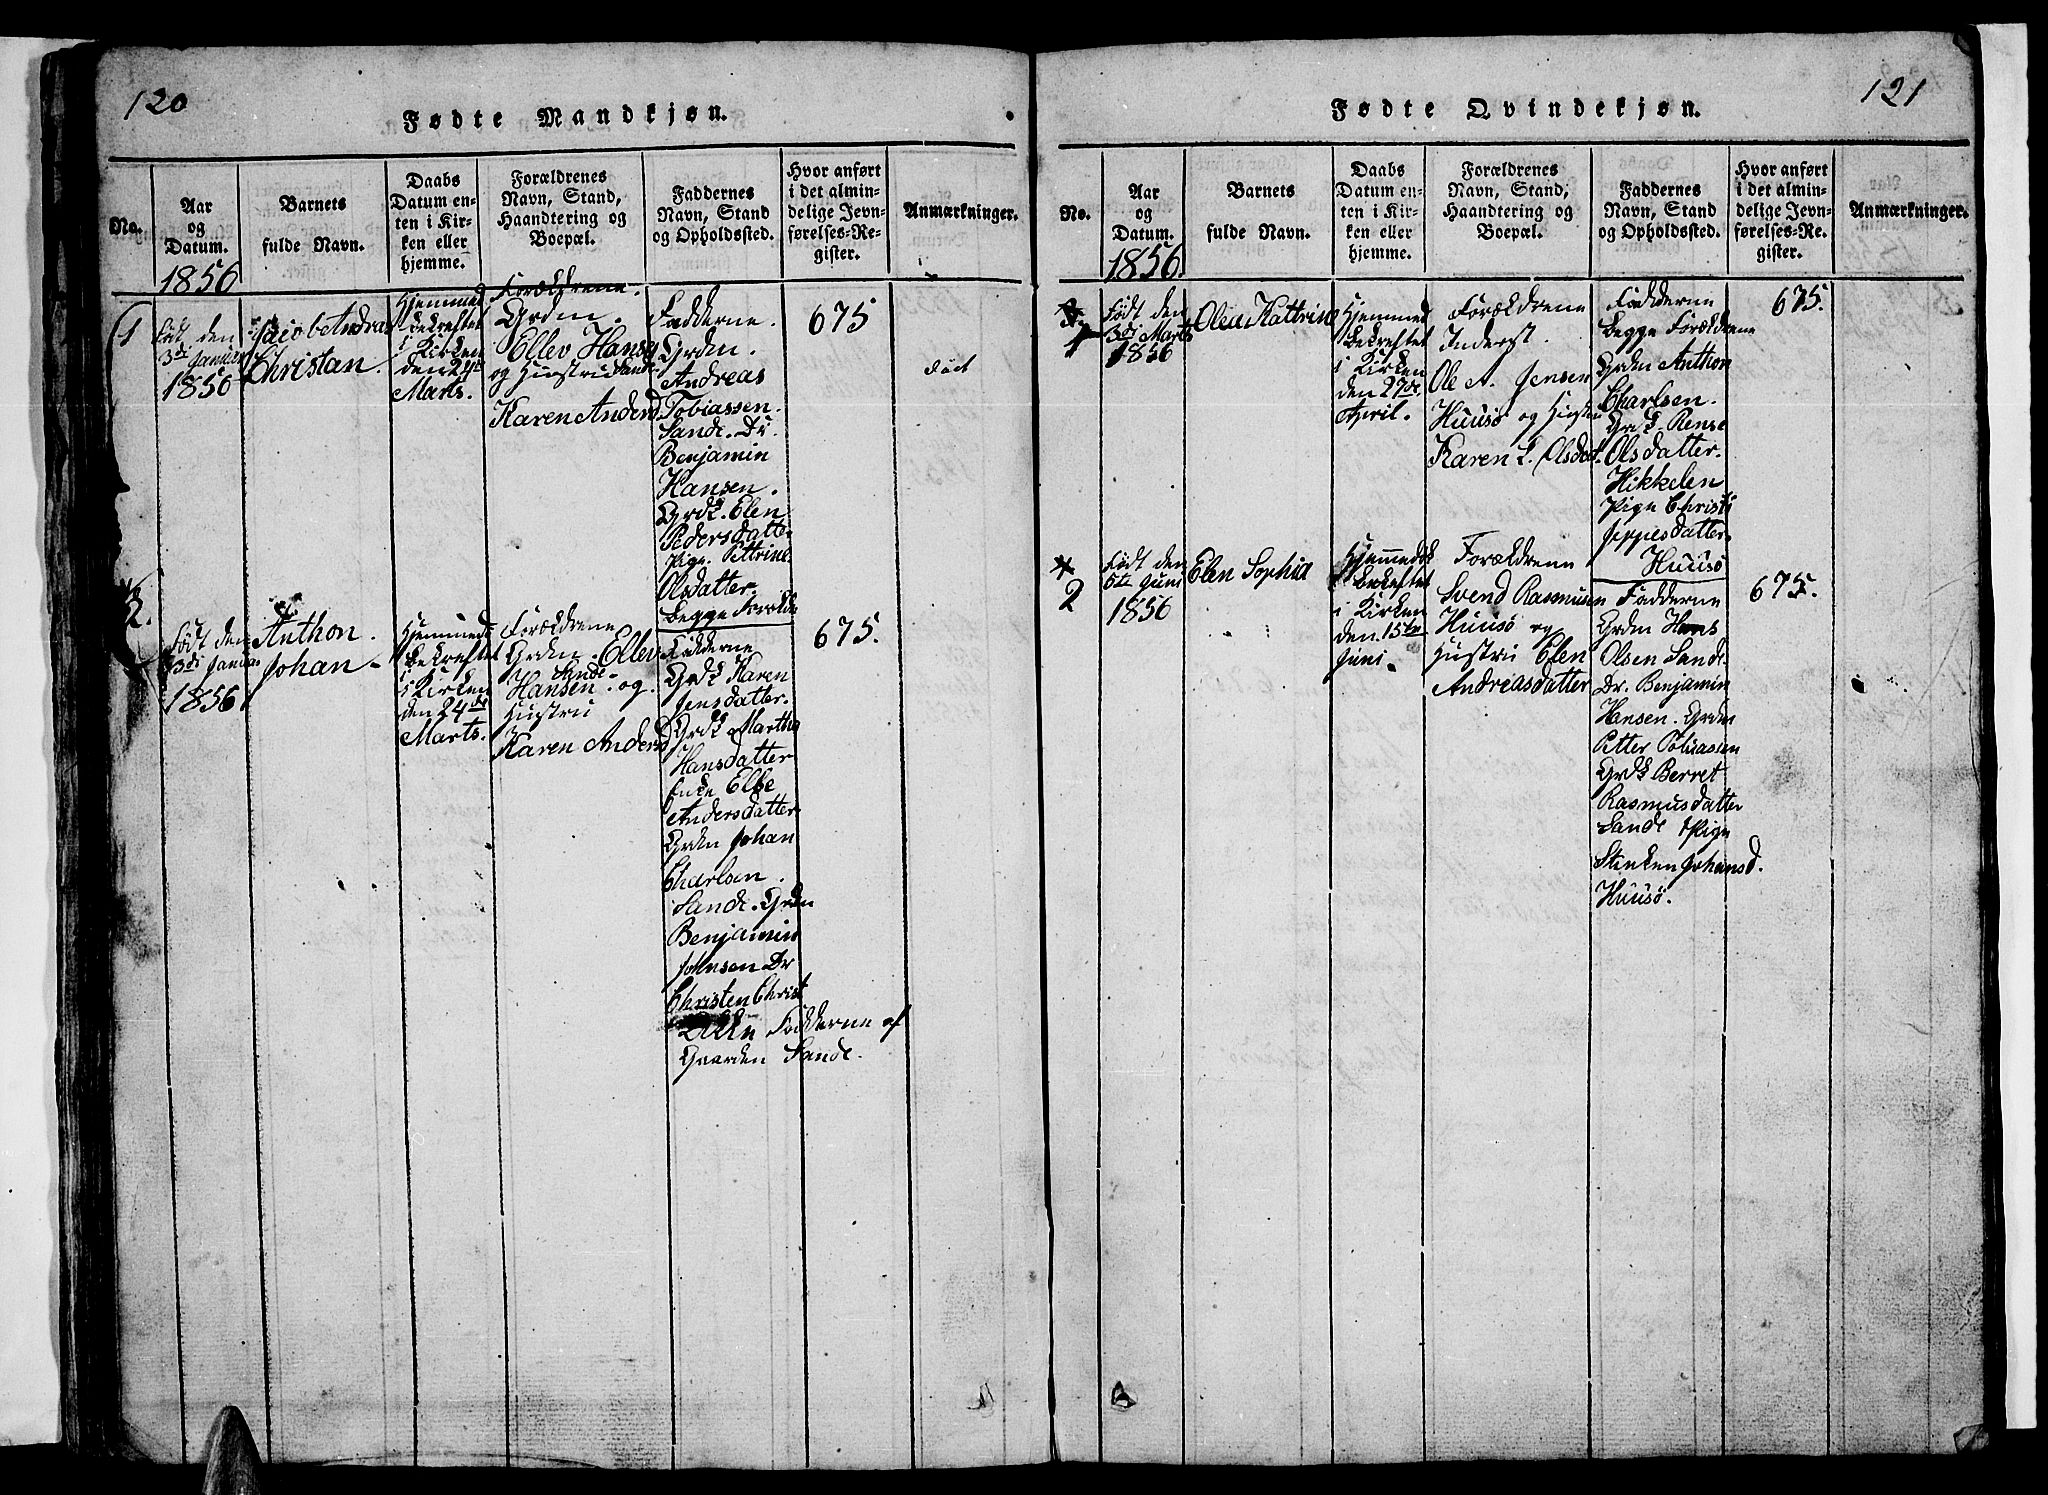 120
Fødte Mandkjøn.
No.
Aar
og
Datum.
1856
Barnets
fulde Navn.
Daabs
Datum en-
ten i Kir-
ken eller
hjemme.
Forældrenes
Navn, Stand,
Haandtering og
Boepæl.
Faddernes
Navn, Stand
og Opholdssted.
Hvor anført
i det almin-
delige Jevn-
førelses-Re-
gister.
Anmærkninger.
1
født den
3di Januar
1856
Jacob Andreas
Christian.
Hjemmed
bekreftet
i Kirken
den 24de
Marts.
Forældrene.
Grdm.
Ellev Hansen
og Hustru Sande
Karen Andersd
Fadderne.
Grdm.
Andreas
Tobiassen.
Sande. Do.
Benjamin
Hansen.
Grdk. Elen
Pedersdatter
Pige. Pettrine
Olsdatter
begge Forælde
675
død
2.
født den
3di Januar
1856
Anthon.
Johan
Hjemmed
bekreftet
i Kirken
den 24de
Marts.
Forældrene
Grdm. Ellev
Sande
Hansen og
Hustru
Karen Andersd
Fadderne
Grdk Karen
Jensdatter.
Grdk Martha
Hansdatter
Enke Elbe
Andersdatter
Grdm Johan
Charlsen.
Sande. Grdm
Benjamin
Johnsen Dr
Christen Christ
Alle Fadderne af
Gaarden Sande.
675.
121
Fødte Qvindekjøn.
No.
Aar
og
Datum.
1856.
Barnets
fulde Navn.
Daabs
Datum en-
ten i Kir-
ken eller
hjemme.
Forældrenes
Navn, Stand,
Haandtering og
Boepæl.
Faddernes
Navn, Stand
og Opholdssted.
Hvor anført
i det almin-
delige Jevn-
førelses-Re-
gister.
Anmærkninger.
1
født den
3di Marts
1856
Olea Kattrine
Hjemmed
bekreftet
i Kirken
den 27de
April.
Forældrene
Inderst.
Ole A. Jensen
Huusø og Hustru
Karen L. Olsdat.
Fadderne
begge Forældrene
Grdm Anthon
Charlsen.
Grdk. Rense
Olsdatter.
Hikkelen
Pige Christi
Jeppesdatter
Huusø
675.
2
født den
6te Juni
1856
Elen Sophia
Hjemmedk
bekreftet
i Kirken
den 15te
Juni.
Forældrene
Svend Rasmusen
Huusø og
Hustru Elen
Andreasdatter
Fadderne
Grdm Hans
Olsen Sande
Dr. Benjamin
Hansen. Grdm
Petter Tobiassen
Grdk Berret
Rasmusdatter
Sande Pige
Stenken Johansd.
Huusø.
675.